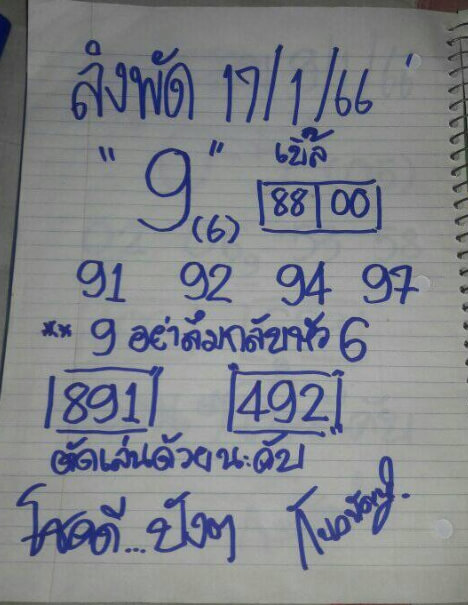 สิงพัด 17/1/66
"9" เบิ้ล
(6) 88 00
91 92 94 97
** 9 อย่าลืมกลับหัว 6
891 492
ตัดเล่นด้วยนะคับ
โชคดี... ปังๆ